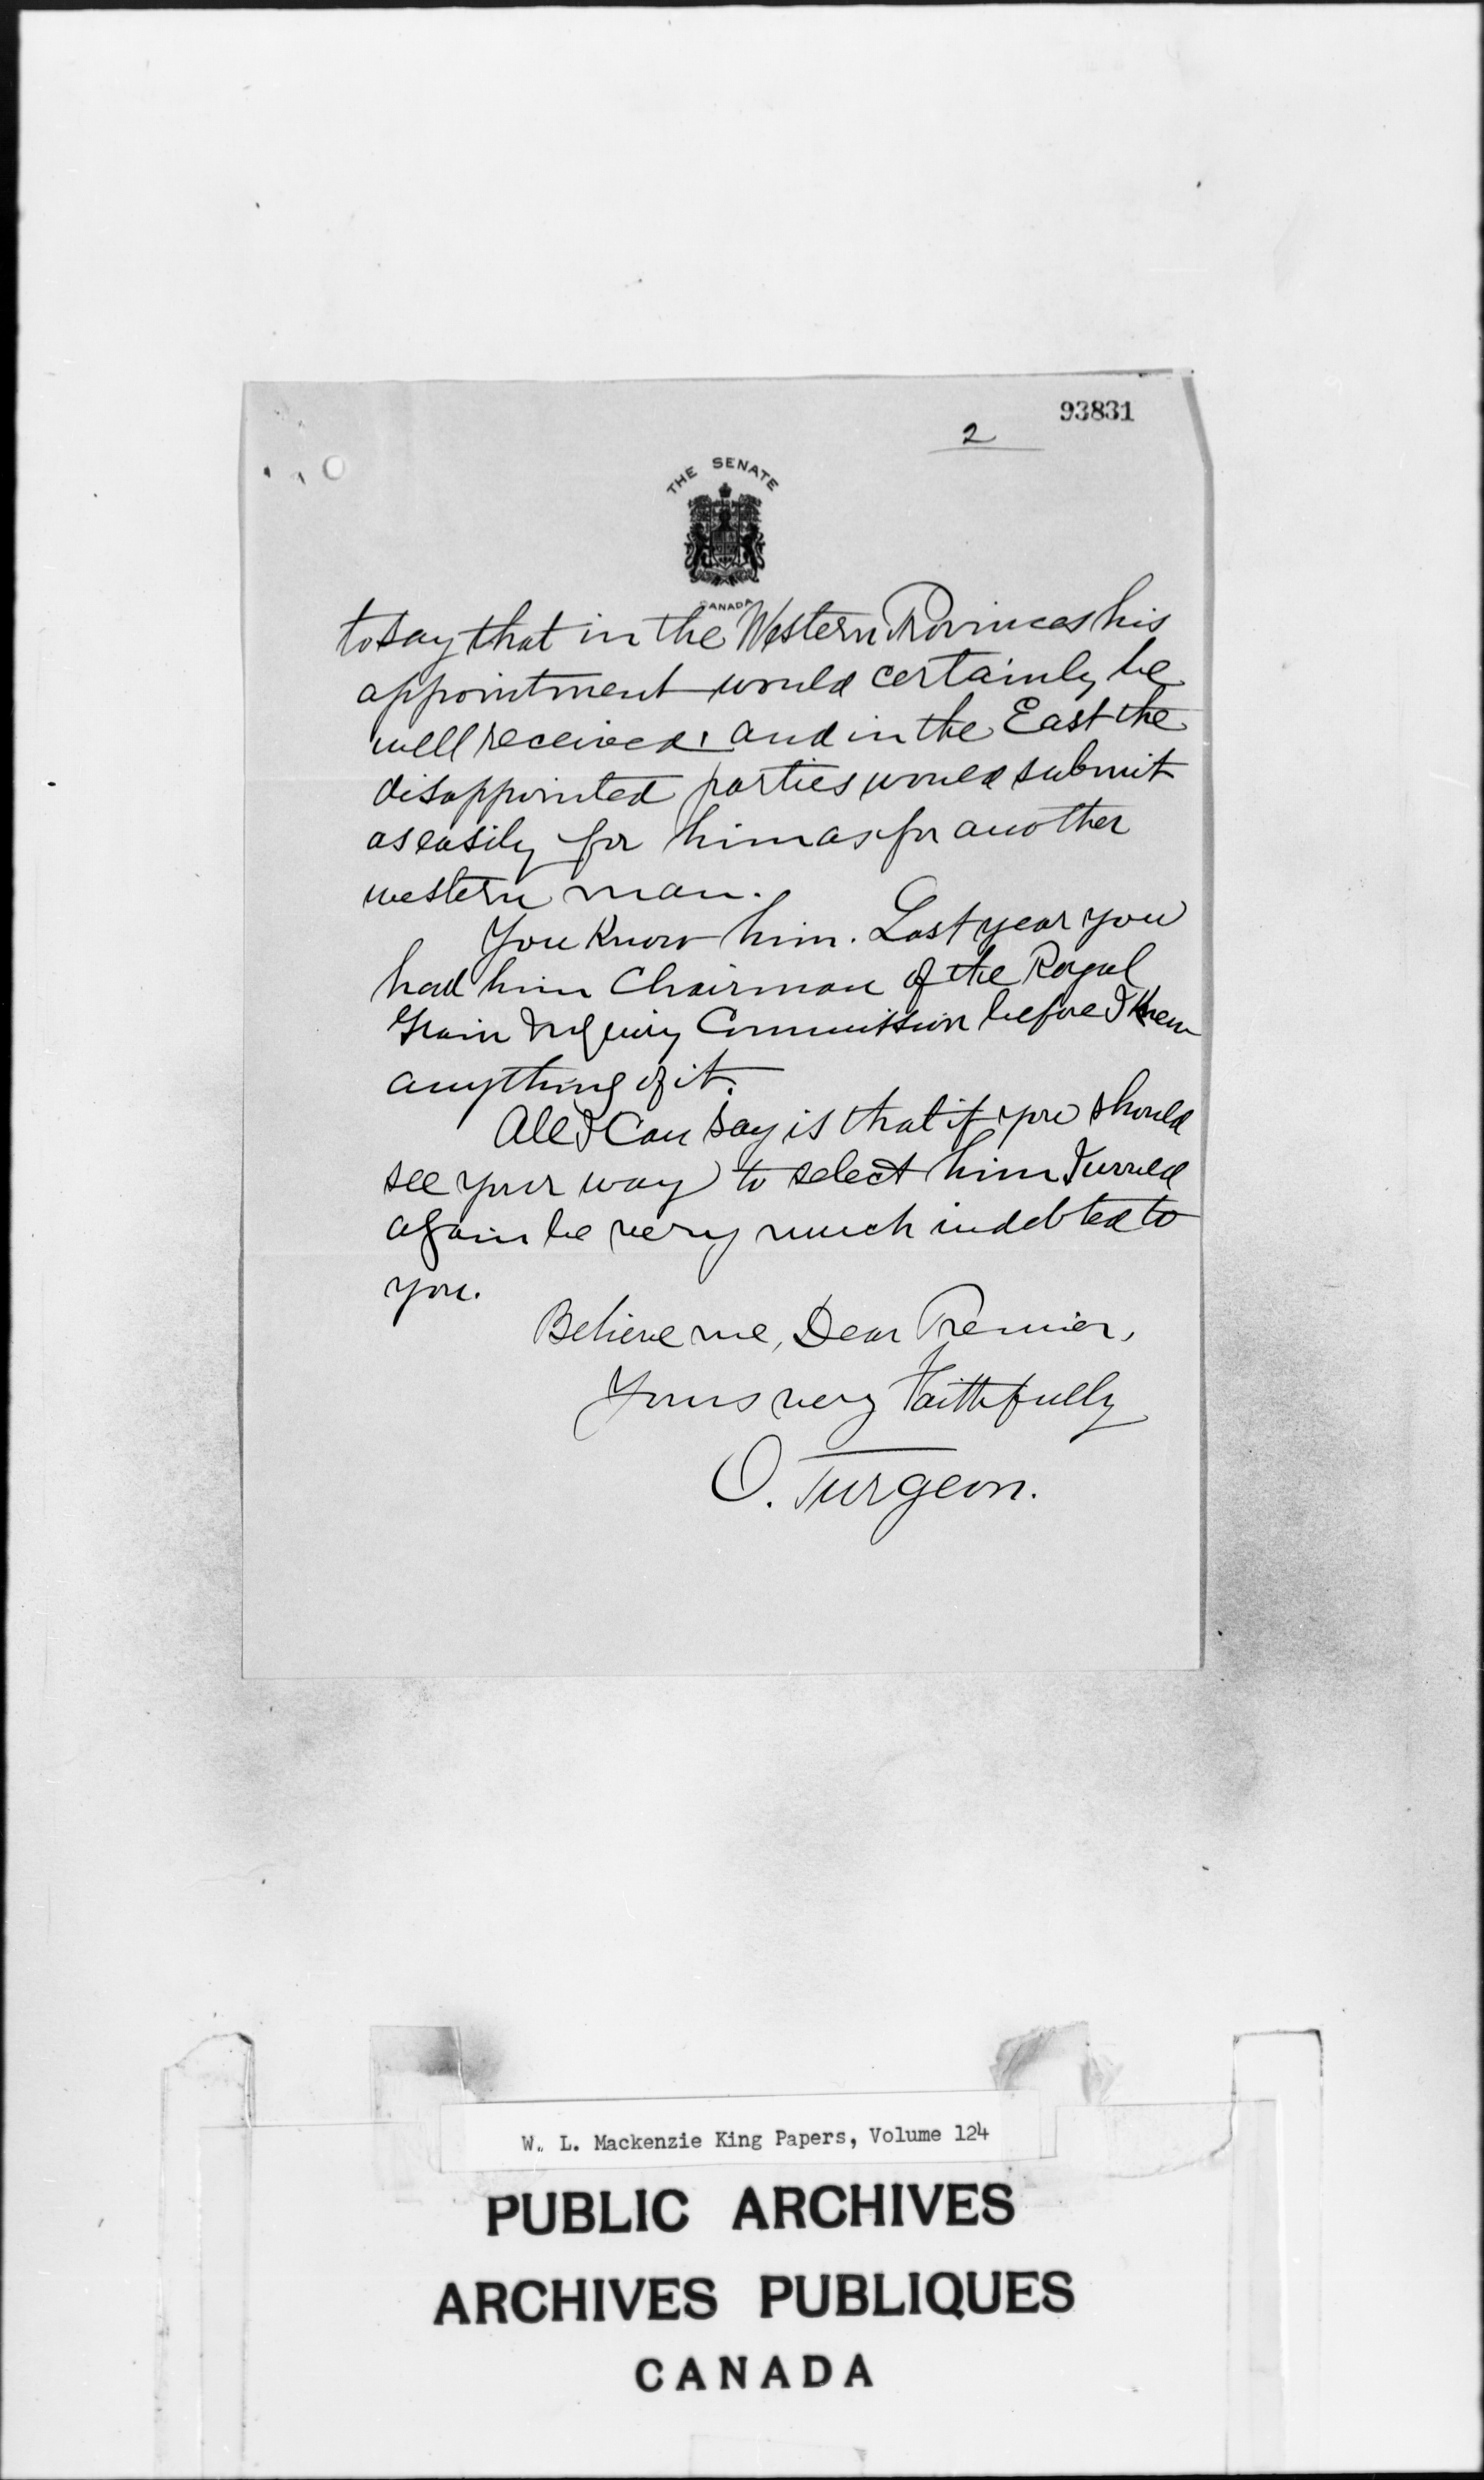 93831
2
THE SENATE
CANADA
to say that in the Western Provinces his
appointment would certainly be
well received, and in the East the
disappointed parties would submit
as easily for him as for another
western man.
You know him. Last year you
had him Chairman of the Royal
Grain Inquiry Commission before I knew
anything of it.
All I can say is that if you should
see your way to select him I would
again be very much indebted to
you.
Believe me, Dear Premier,
Yours very Faithfully
O. Turgeon.
W. L. Mackenzie King Papers, Volume 124
PUBLIC ARCHIVES
ARCHIVES PUBLIQUES
CANADA